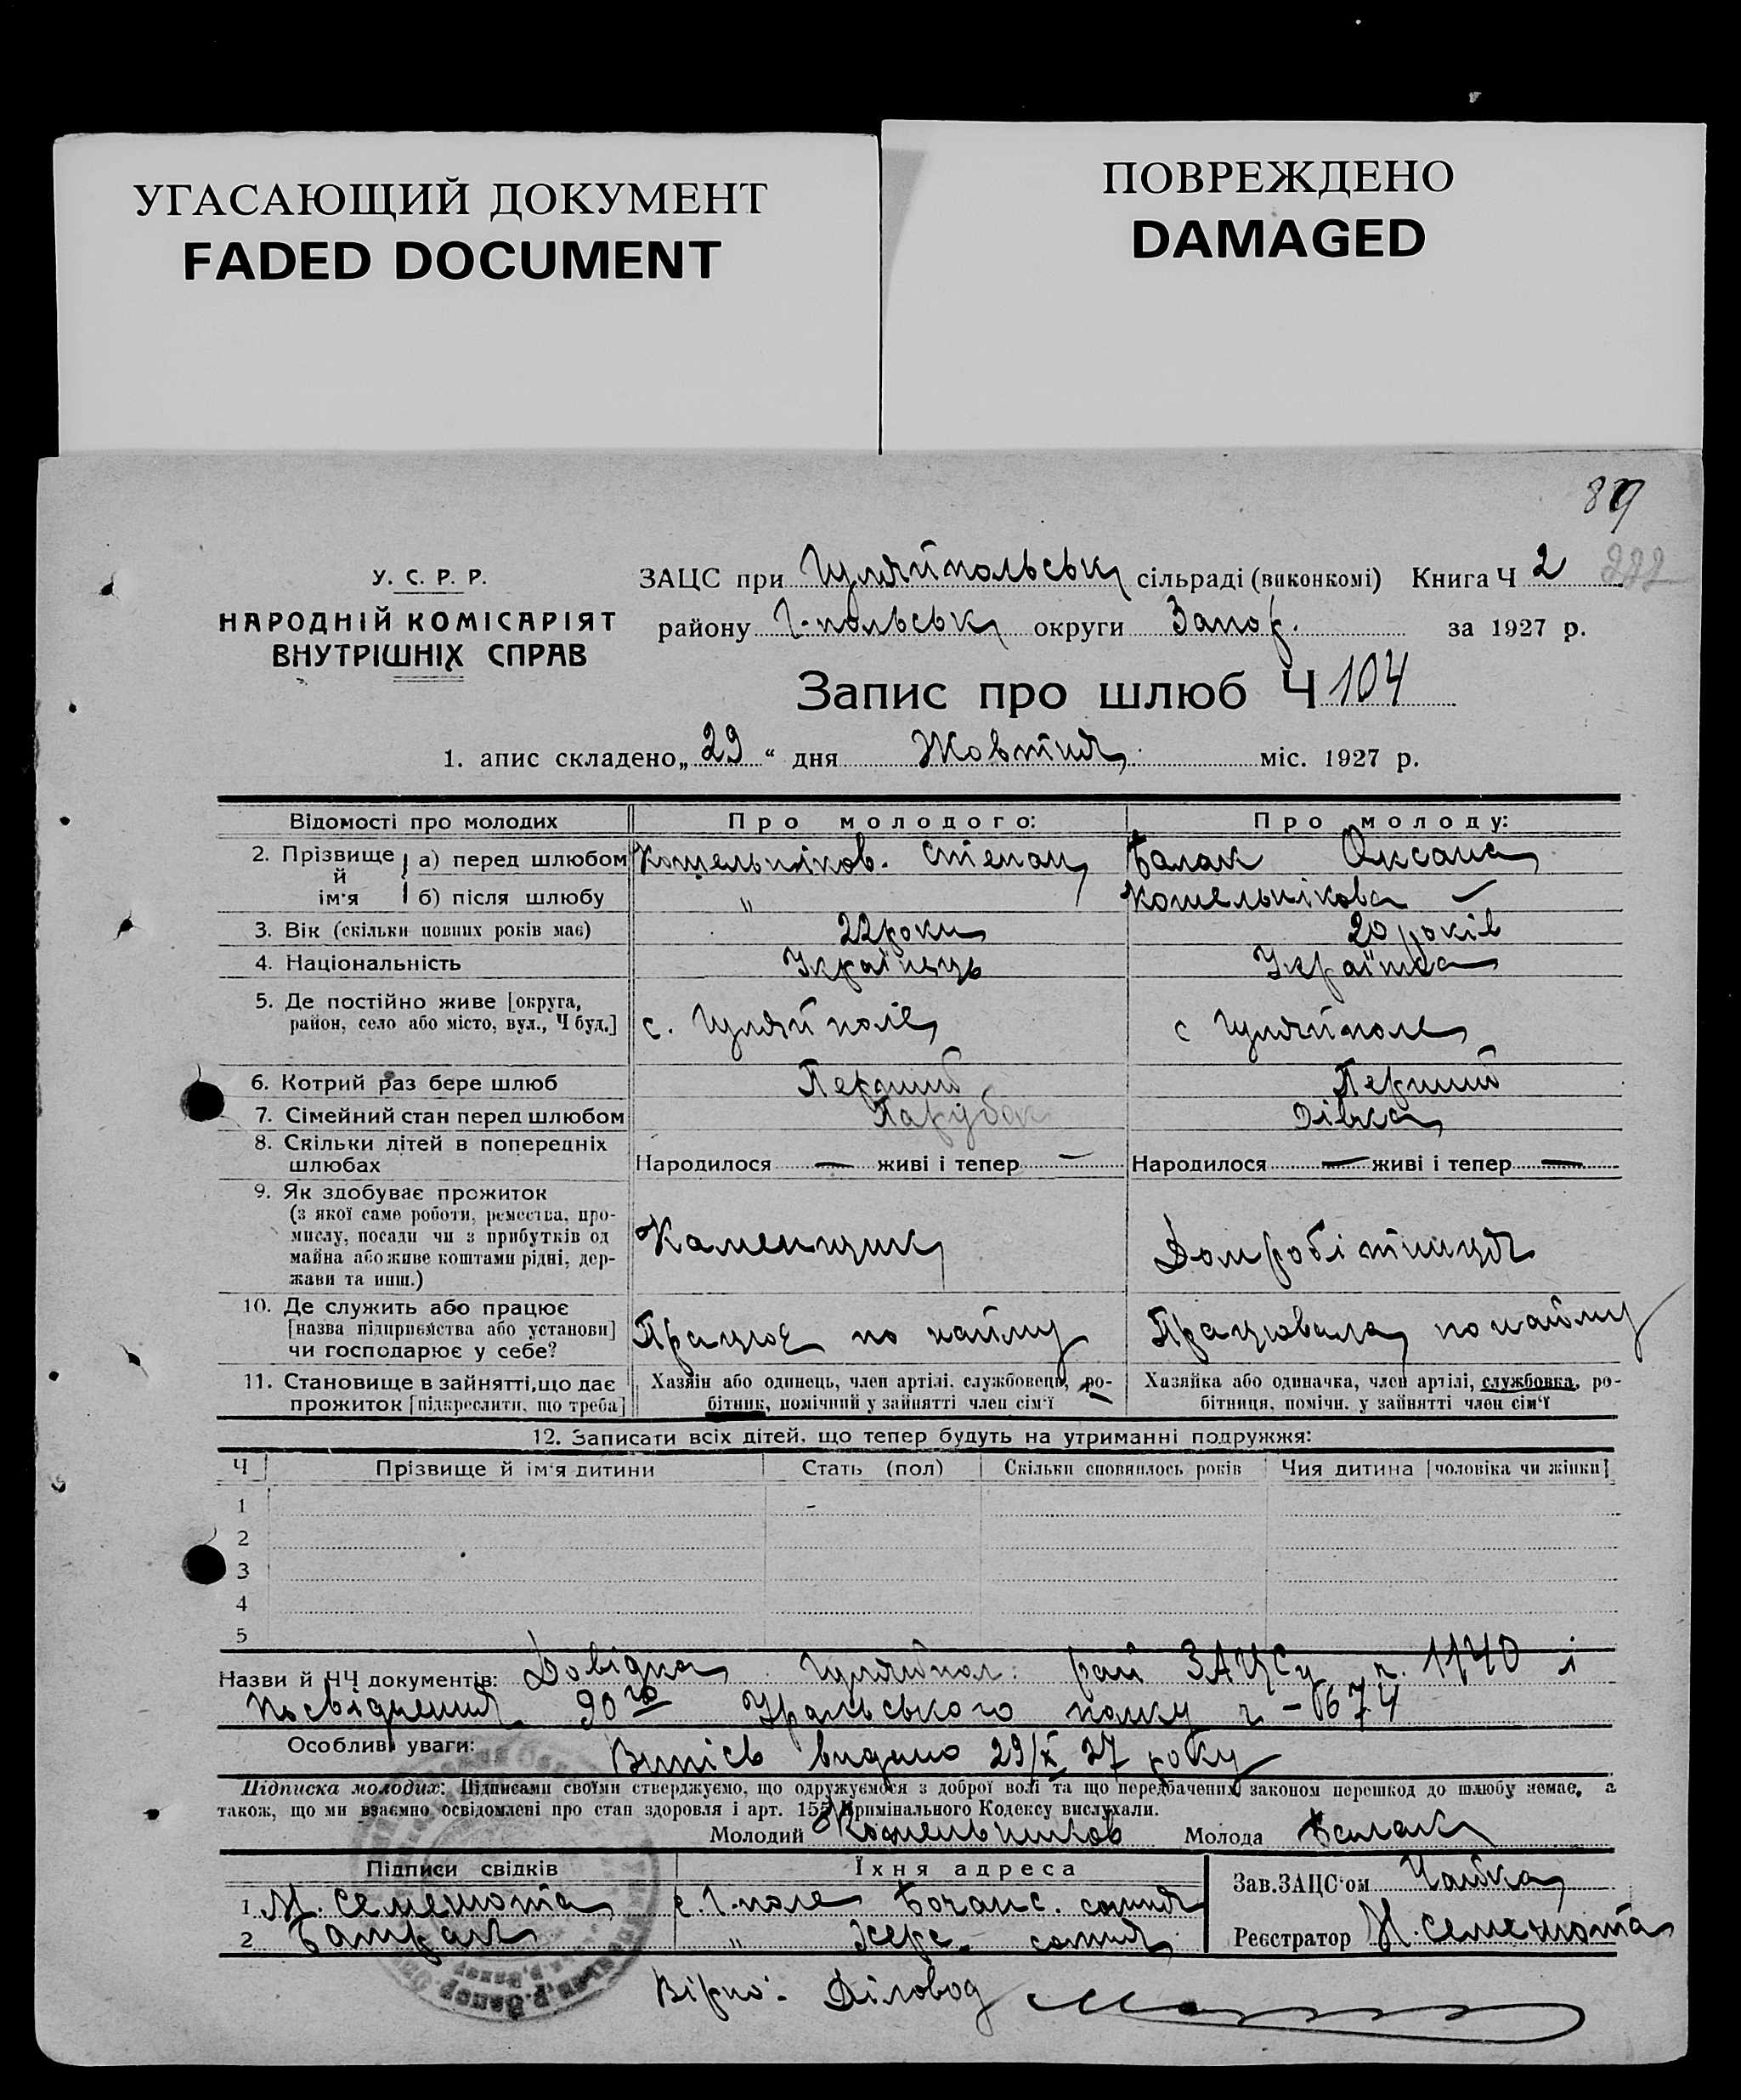 УГАСАЮЩИЙ ДОКУМЕНТ
FADED DOCUMENT
ПОВРЕЖДЕНО
DAMAGED
89
222
У. С. Р. Р.
НАРОДНІЙ КОМІСАРІЯТ
ВНУТРІШНІХ СПРАВ
ЗАЦС при Гуляйпольськ сільраді (виконкомі) Книга Ч 2
району Г-польськ округи Запор. за 1927 р.
Запис про шлюб Ч 104
1. апис складено „ 29 “ дня Жовтня міс. 1927 р.
Відомості про молодих Про молодого: Про молоду:
2. Прізвище й ім'я а) перед шлюбом Котельніков. Степан Балак Оксана
б) після шлюбу " Котельнікова
3. Вік (скільки повних років має) 22 роки 20 років
4. Національність Українець Українка
5. Де постійно живе [округа, район, село або місто, вул., Ч буд.] с. Гуляйполе с Гуляйполе
6. Котрий раз бере шлюб Перший Перший
7. Сімейний стан перед шлюбом Парубок Дівка
8. Скільки дітей в попередніх шлюбах Народилося — живі і тепер — Народилося — живі і тепер —
9. Як здобуває прожиток
(з якої саме роботи, ремества, про-
мислу, посади чи з прибутків од
майна або живе коштами рідні, дер-
жави та инш.) Каменщик Домробітниця
10. Де служить або працює
[назва підприємства або установи]
чи господарює у себе? Працює по найму Працювала по найму
11. Становище в зайнятті, що дає
прожиток [підкреслити, що треба]
Хазяїн або одинець, член артілі, службовець, ро-
бітник, помічний у зайнятті член сім'ї
Хазяйка або одиначка, член артілі, службовка, ро-
бітниця, помічн. у зайнятті член сім'ї
12. Записати всіх дітей, що тепер будуть на утриманні подружжя:
Ч Прізвище й ім'я дитини Стать (пол) Скільки сповнилось років Чия дитина [чоловіка чи жінки]
1
2
3
4
5
Назви й ЧЧ документів: Довідка Гуляйпол. рай ЗАЦСу ч. 1140 і
Посвідчення 90го Уральського полку ч - 674
Особливі уваги: Випісь видано 29/X 27 року
Підписка молодих: Підписами своїми стверджуємо, що одружуємося з доброї волі та що передбачених законом перешкод до шлюбу немає, а
також, що ми взаємно освідомлені про стан здоровля і арт. 155 Кримінального Кодексу вислухали.
Молодий Котельников Молода Балак
Підписи свідків Їхня адреса
1 М. Семенюта с. Г-поле сотня
2 " Херс. сотня
Зав. ЗАЦС'ом Чайка
Реєстратор Н. Семенюта
Вірно: Діловод